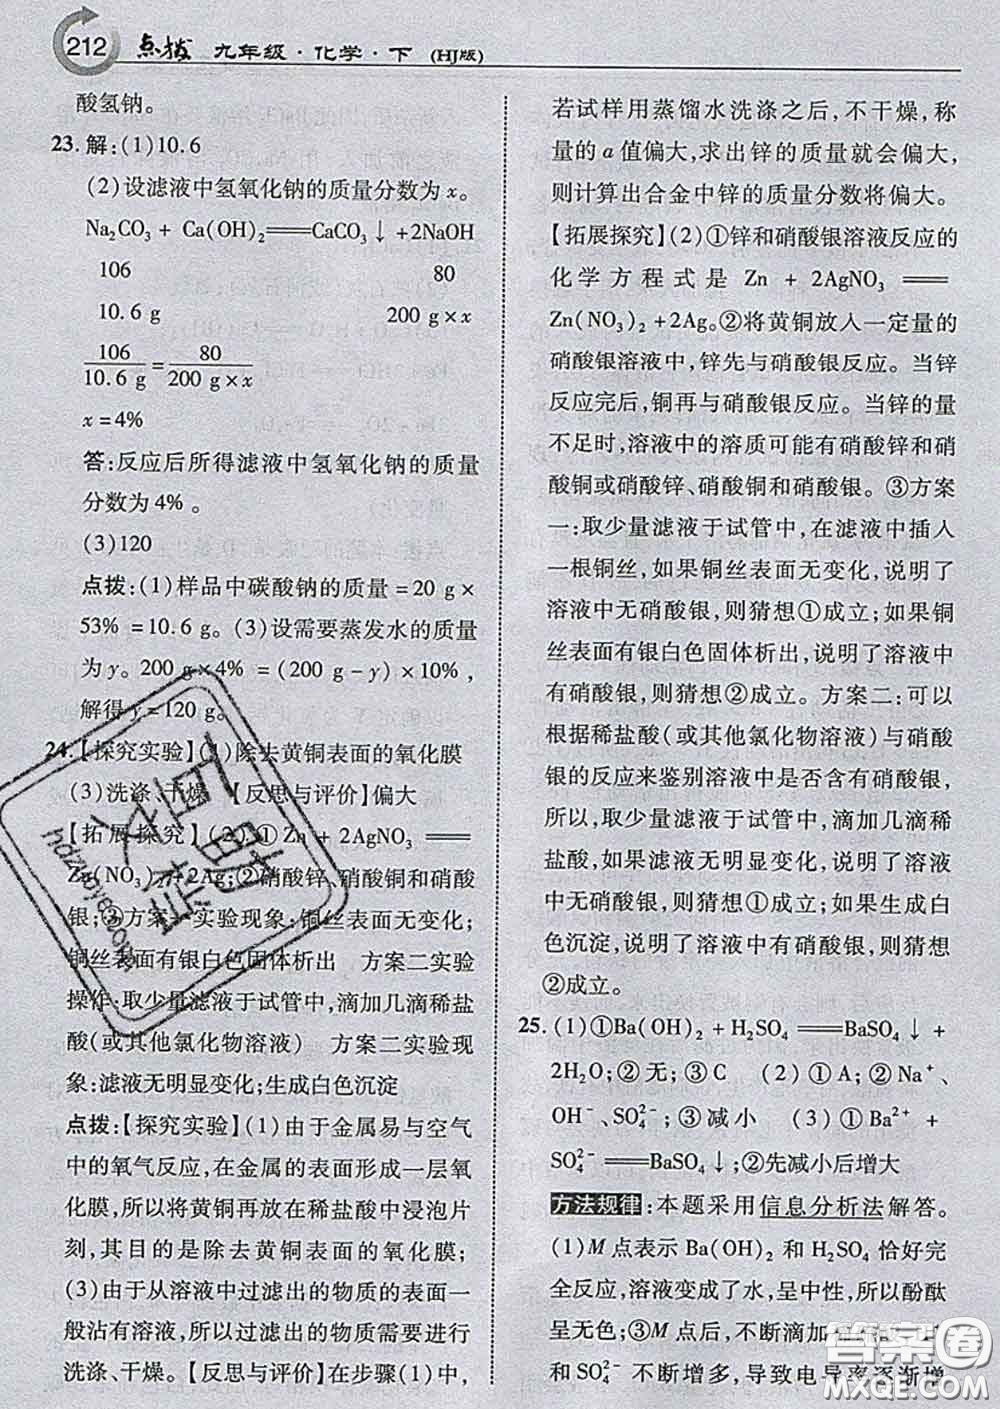 212 点拨 九年级·化学·下 (HJ版)
酸氢钠。
23. 解:(1)10.6
(2)设滤液中氢氧化钠的质量分数为x。
Na₂CO₃ + Ca(OH)₂══CaCO₃↓+2NaOH
106 80
10.6 g 200 g×x
106/10.6 g = 80/200 g×x
x = 4%
答:反应后所得滤液中氢氧化钠的质量
分数为4%。
(3)120
点拨:(1)样品中碳酸钠的质量=20 g×
53% =10.6 g。(3)设需要蒸发水的质量
为y。200 g×4% =(200 g−y)×10%,
解得y=120 g。
24.【探究实验】(1)除去黄铜表面的氧化膜
(3)洗涤、干燥 【反思与评价】偏大
【拓展探究】(2)①Zn + 2AgNO₃ ══
Zn(NO₃)₂+2Ag;②硝酸锌、硝酸铜和硝酸
银;③方案一实验现象:铜丝表面无变化;
铜丝表面有银白色固体析出 方案二实验
操作:取少量滤液于试管中,滴加几滴稀盐
酸(或其他氯化物溶液) 方案二实验现
象:滤液无明显变化;生成白色沉淀
点拨:【探究实验】(1)由于金属易与空气
中的氧气反应,在金属的表面形成一层氧
化膜,所以将黄铜放入稀盐酸中浸泡片
刻,其目的是除去黄铜表面的氧化膜;
(3)由于从溶液中过滤出的物质的表面一
般沾有溶液,所以过滤出的物质需要进行
洗涤、干燥。【反思与评价】在步骤(1)中,
若试样用蒸馏水洗涤之后,不干燥,称
量的a值偏大,求出锌的质量就会偏大,
则计算出合金中锌的质量分数将偏大。
【拓展探究】(2)①锌和硝酸银溶液反应的
化学方程式是 Zn + 2AgNO₃ ══
Zn(NO₃)₂+2Ag。②将黄铜放入一定量的
硝酸银溶液中,锌先与硝酸银反应。当锌
反应完后,铜再与硝酸银反应。当锌的量
不足时,溶液中的溶质可能有硝酸锌和硝
酸铜或硝酸锌、硝酸铜和硝酸银。③方案
一:取少量滤液于试管中,在滤液中插入
一根铜丝,如果铜丝表面无变化,说明了
溶液中无硝酸银,则猜想①成立;如果铜
丝表面有银白色固体析出,说明了溶液中
有硝酸银,则猜想②成立。方案二:可以
根据稀盐酸(或其他氯化物溶液)与硝酸
银的反应来鉴别溶液中是否含有硝酸银,
所以,取少量滤液于试管中,滴加几滴稀
盐酸,如果滤液无明显变化,说明了溶液
中无硝酸银,则猜想①成立;如果生成白
色沉淀,说明了溶液中有硝酸银,则猜想
②成立。
25. (1)①Ba(OH)₂ + H₂SO₄══BaSO₄↓ +
2H₂O;②无;③C (2)①A;②Na⁺、
OH⁻、SO₄²⁻;③减小 (3)①Ba²⁺ +
SO₄²⁻══BaSO₄↓;②先减小后增大
方法规律:本题采用信息分析法解答。
(1)M 点表示 Ba(OH)₂ 和 H₂SO₄ 恰好完
全反应,溶液变成了水,呈中性,所以酚酞
呈无色;③M点后,不断滴加
和SO₄²⁻不断增多,导致电导率逐渐增
答案圈
MXQE.COM